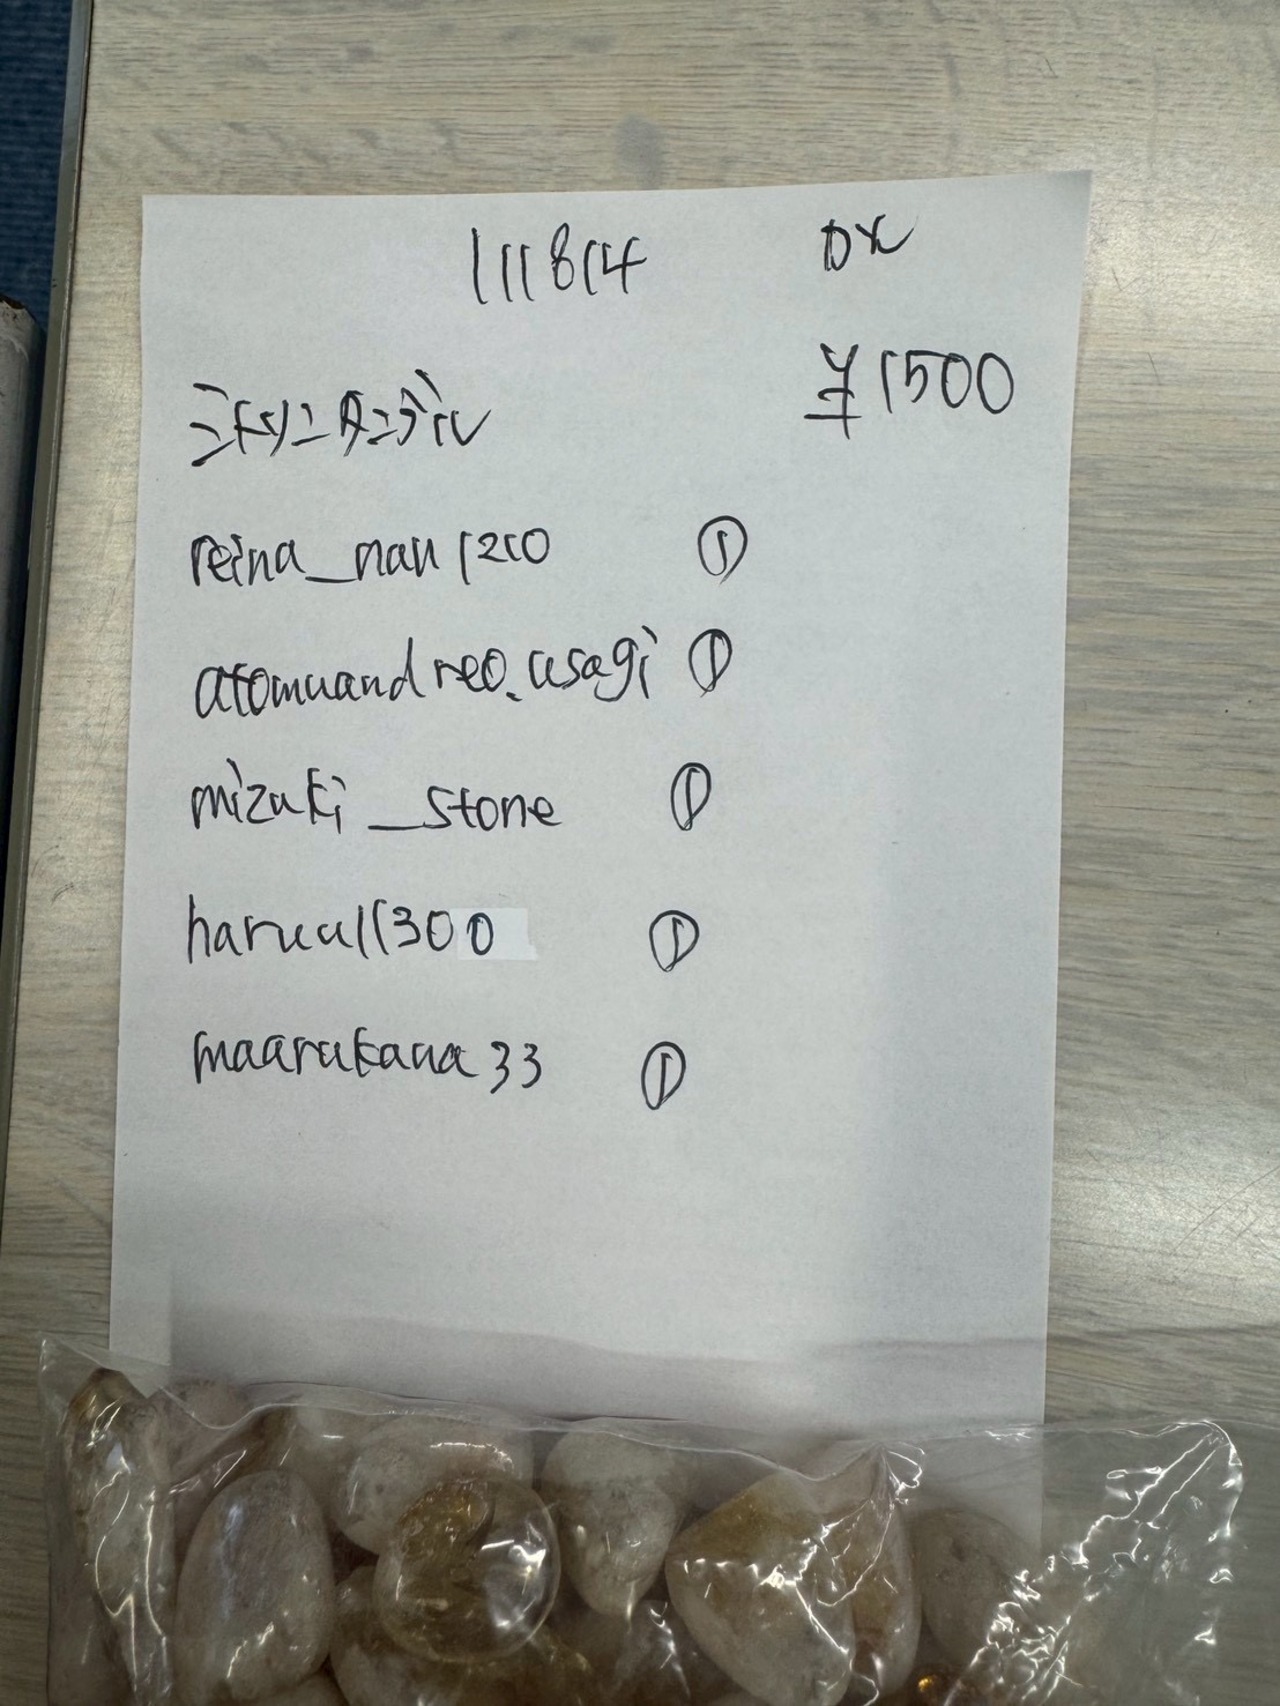 111814
¥1500
reina_nau1210
atomuandreo.usagi ①
mizuki_stone ①
harua11300 ①
maarukana33 ①